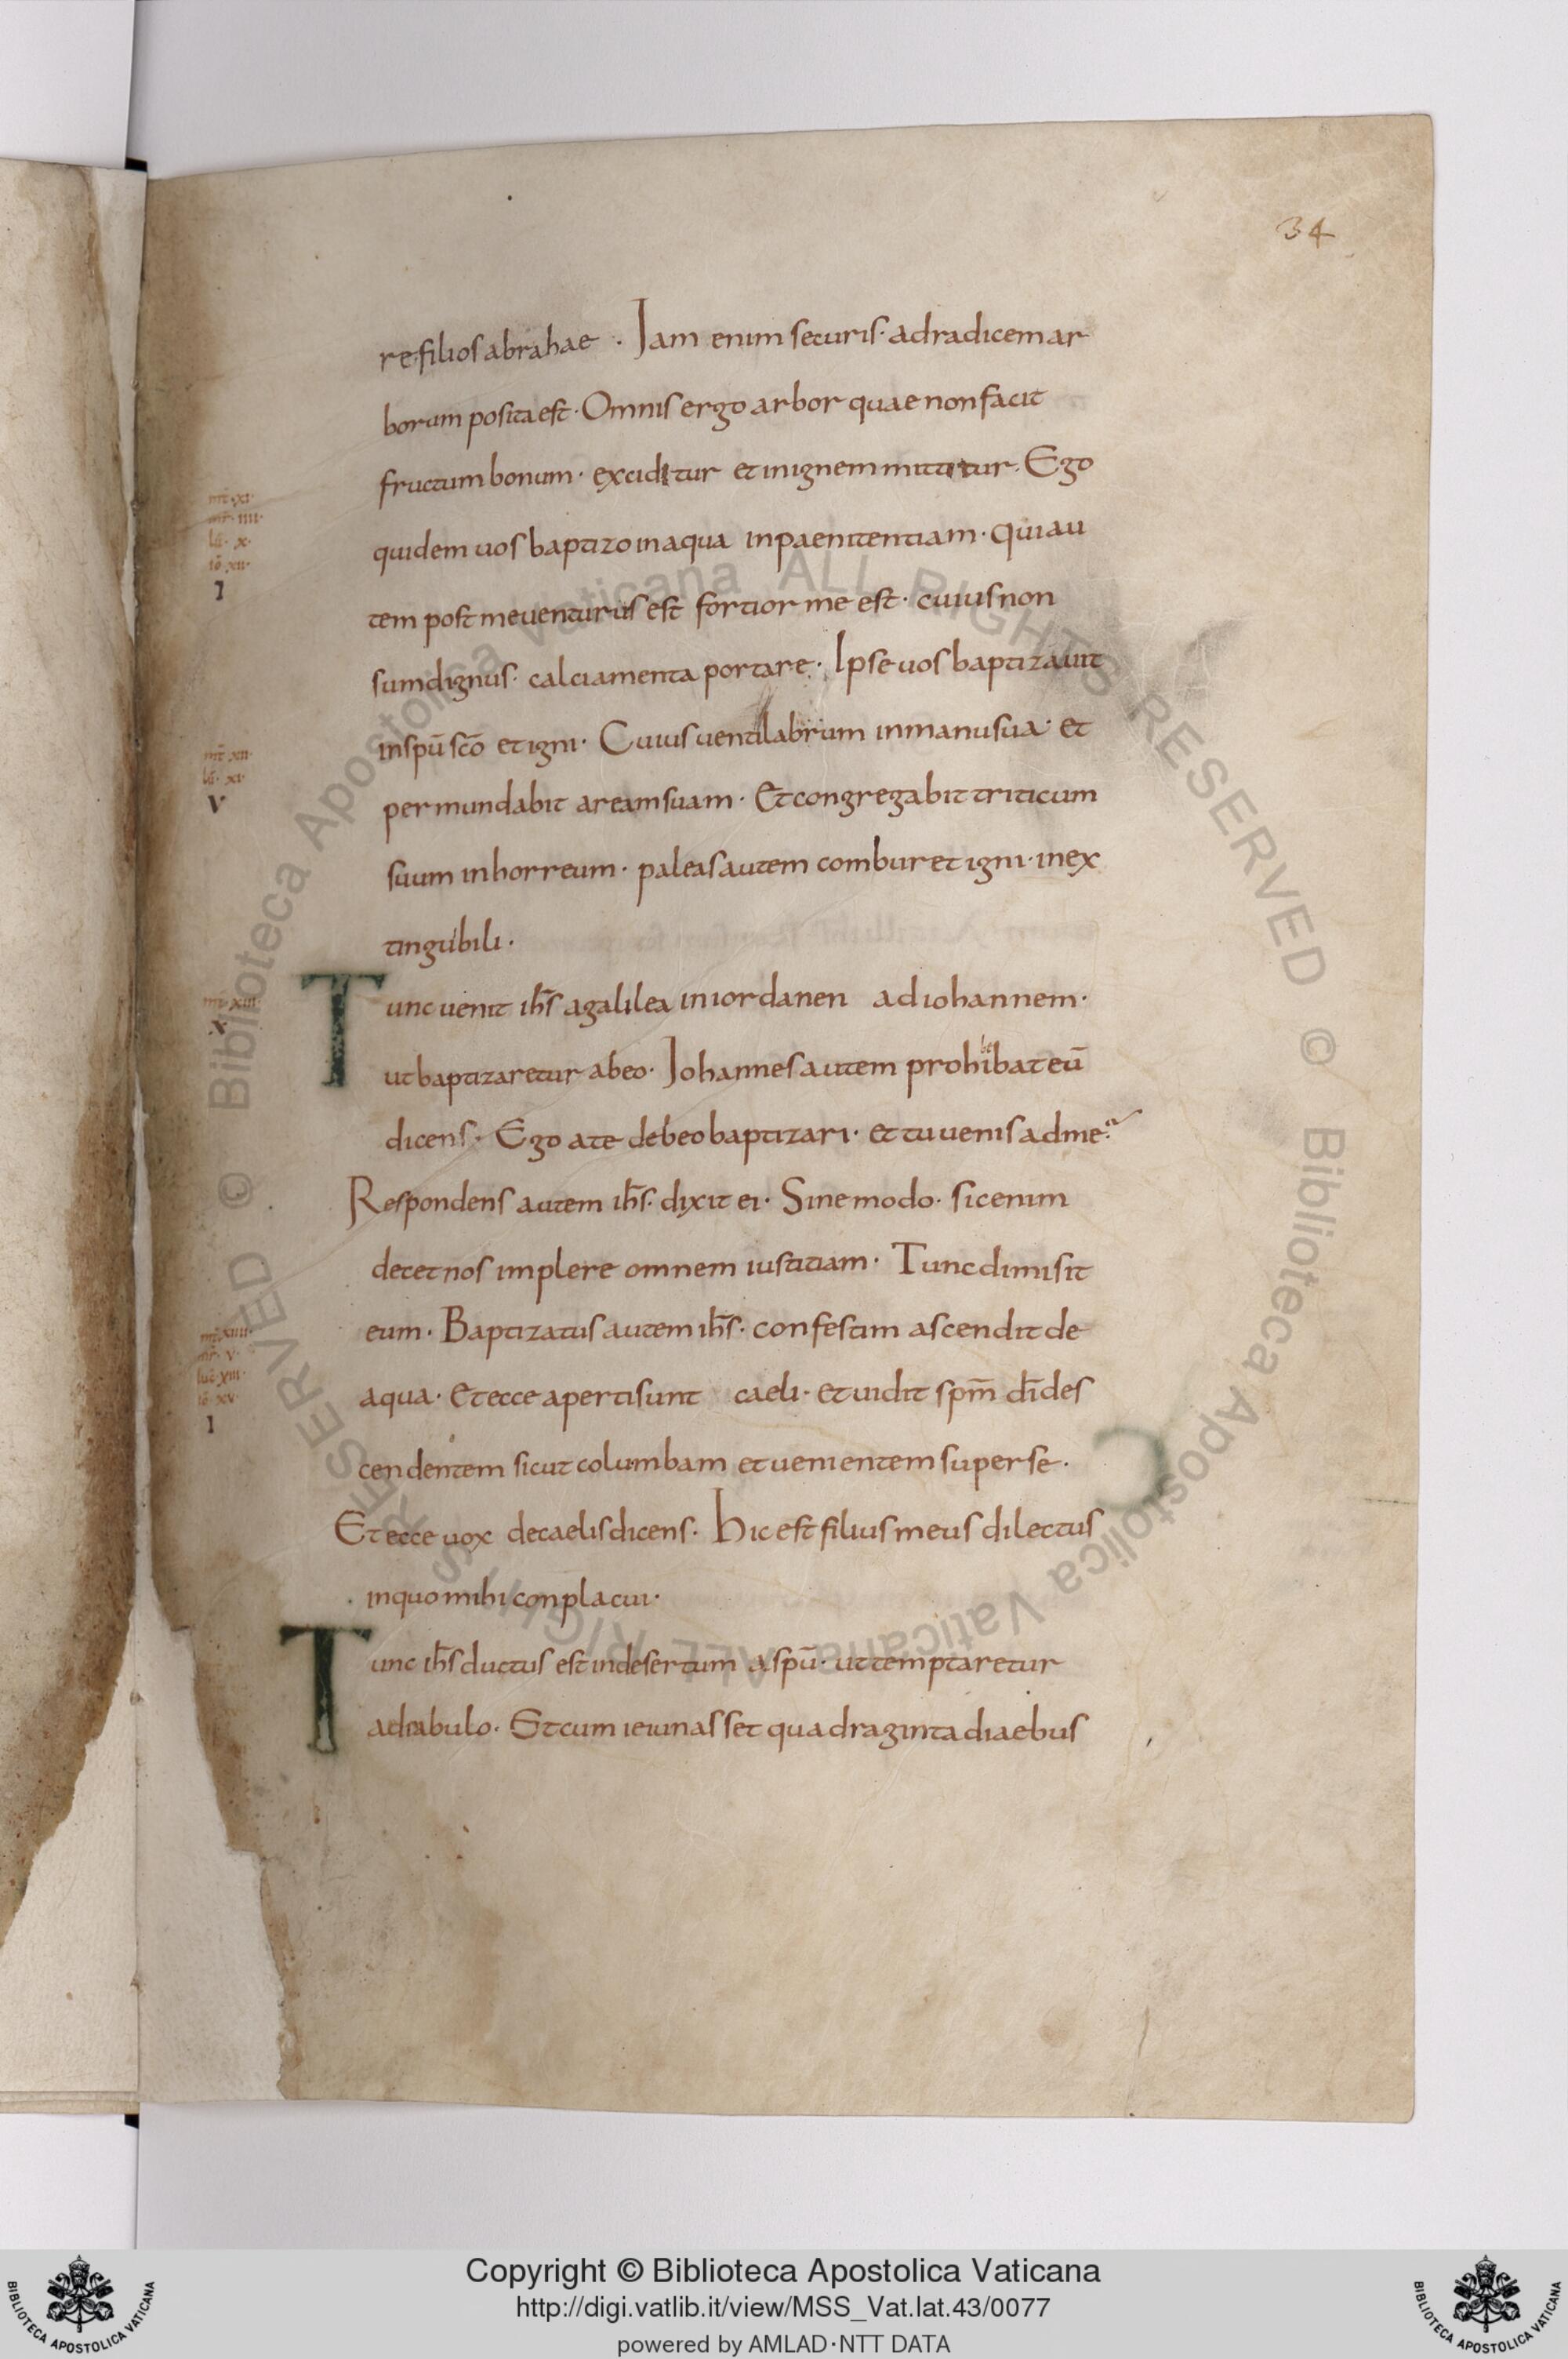 34
re filios abrahae · Iam enim securis · ad radicem ar
borum posita est · Omnis ergo arbor quae non facit
fructum bonum · exciditur et in ignem mittitur · Ego
mt̄ · xi ·
mr̄ · iiii ·
lū · x ·
iō · xii ·
I
quidem uos baptizo in aqua in paenitentiam · qui au
tem post me uenturus est fortior me est · cuius non
sum dignus · calciamenta portare · Ipse uos baptizauit
in spū scō et igni · Cuius uentilabrum in manu sua · et
mt̄ · xii ·
lū · xi ·
V
permundabit aream suam · Et congregabit triticum
suum in horreum · paleas autem comburet igni · inex
tingubili ·
Tunc uenit ih̄s a galilea in iordanen ad iohannem ·
mt̄ · xiii ·
X
ut baptizaretur ab eo · Iohannes autem prohibebat eū
dicens · Ego a te debeo baptizari · et tu uenis ad me
Respondens autem ih̄s · dixit ei · Sine modo · sic enim
decet nos implere omnem iustitiam · Tunc dimisit
eum · Baptizatus autem ih̄s · confestim ascendit de
mt̄ · xiiii ·
mr̄ · v ·
luc̄ · xiii ·
iō · xv ·
I
aqua · Et ecce aperti sunt caeli · et uidit spm̄ dī des
cendentem sicut columbam et uenientem super se ·
Et ecce uox de caelis dicens · Hic est filius meus dilectus
in quo mihi conplacui ·
Tunc ih̄s ductus est in desertum a spū · ut temptaretur
a diabulo · Et cum ieiunasset quadraginta diaebus
Biblioteca Apostolica Vaticana ALL RIGHTS RESERVED ©
Biblioteca Apostolica Vaticana ALL RIGHTS RESERVED ©
Copyright © Biblioteca Apostolica Vaticana
http://digi.vatlib.it/view/MSS_Vat.lat.43/0077
powered by AMLAD·NTT DATA
BIBLIOTECA APOSTOLICA VATICANA
BIBLIOTECA APOSTOLICA VATICANA